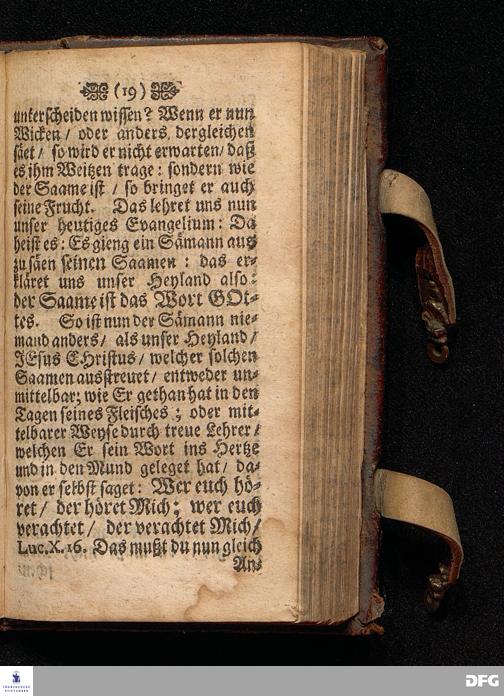 (19)
unterscheiden wissen? Wenn er nun
Wicken / oder anders dergleichen
säet / so wird er nicht erwarten / daß
es ihm Weitzen trage: sondern wie
der Saame ist / so bringet er auch
seine Frucht. Das lehret uns nun
unser heutiges Evangelium: Da
heist es: Es gieng ein Sämann aus
zu säen seinen Saamen: das er-
kläret uns unser Heyland also:
der Saame ist das Wort GOt-
tes. So ist nun der Sämann nie-
mand anders / als unser Heyland /
JEsus CHristus / welcher solchen
Saamen ausstreuet / entweder un-
mittelbar; wie Er gethan hat in den
Tagen seines Fleisches; oder mit-
telbarer Weyse durch treue Lehrer /
welchen Er sein Wort ins Hertze
und in den Mund geleget hat / da-
von er selbst saget: Wer euch hö-
ret / der höret Mich; wer euch
verachtet / der verachtet Mich /
Luc. X. 16. Das mußt du nun gleich
An-
FRANCKESCHE
STIFTUNGEN
DFG